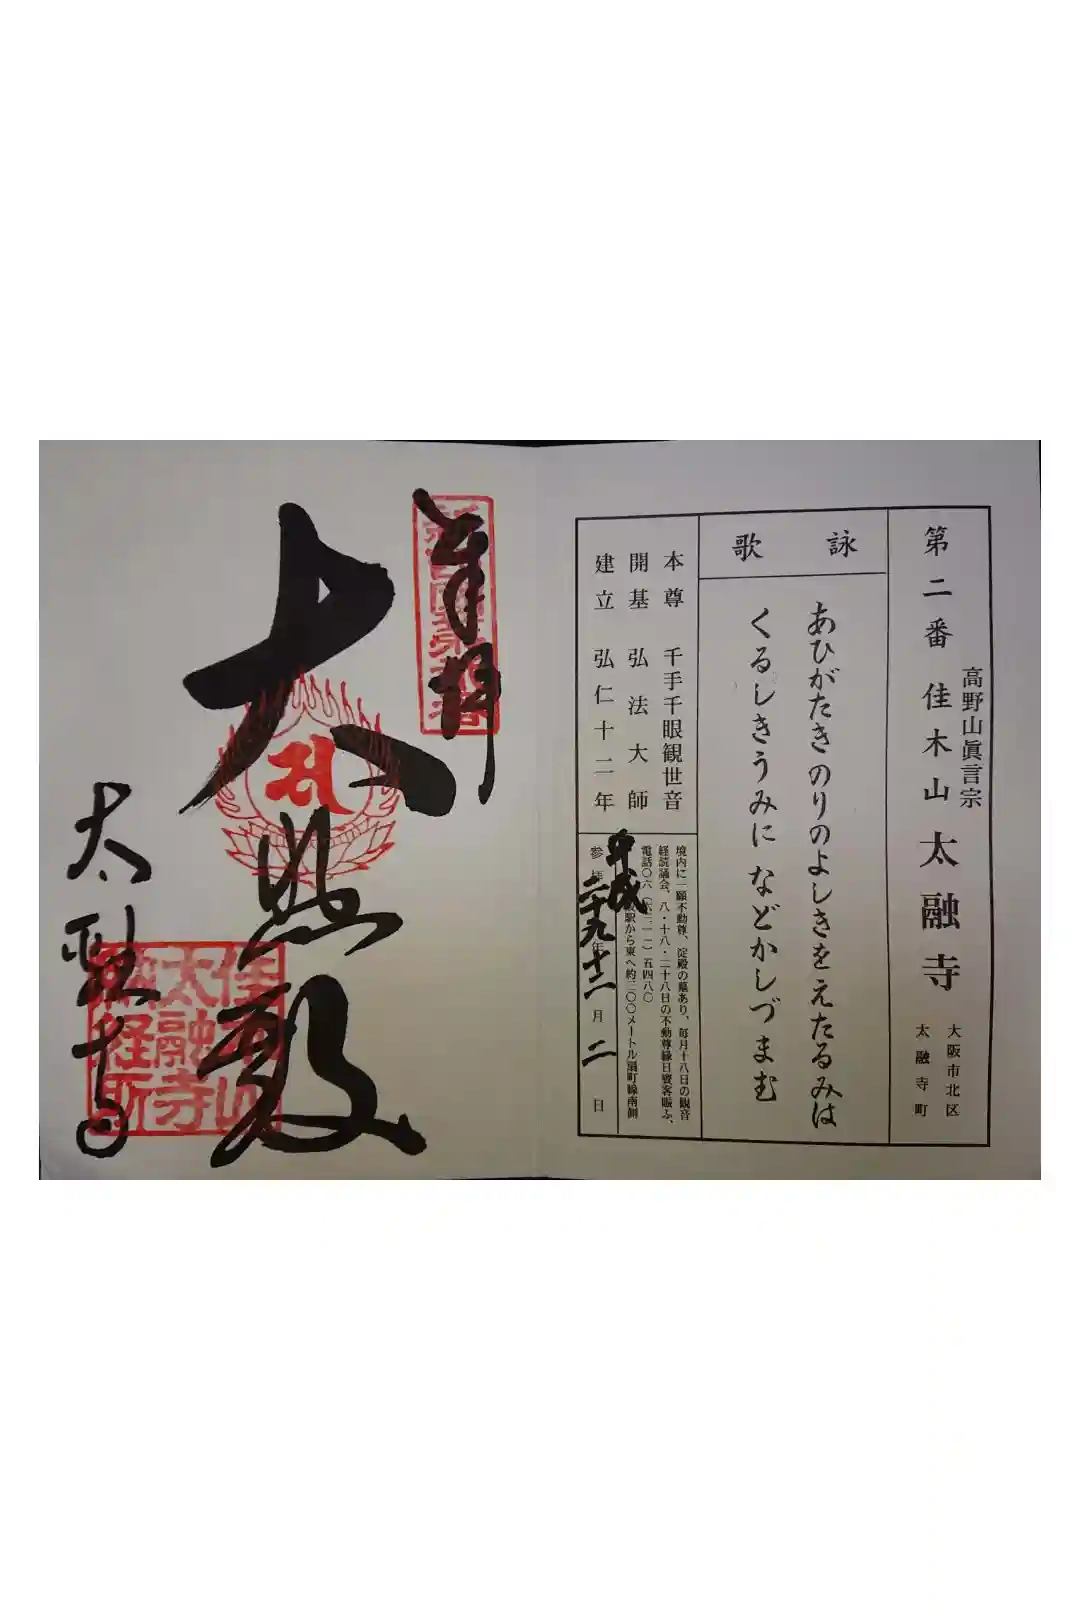 第二番 佳木山 太融寺
高野山眞言宗
大阪市北区
太融寺町
詠歌
あひがたきのりのよしきをえたるみは
くるしきうみに などかしづまむ
本尊 千手千眼観世音
開基 弘法大師
建立 弘仁十二年
境内に一願不動尊、淀殿の墓あり、毎月十八日の観音
経読誦会、八・十八・二十八日の不動尊縁日賽客賑ふ、
電話〇六(六三一一)五四八〇
駅から東へ約三〇〇メートル扇町線南側
平成
二十九年十二月二日
奉拝
大悲殿
太融寺
佳木山
太融寺
納経所